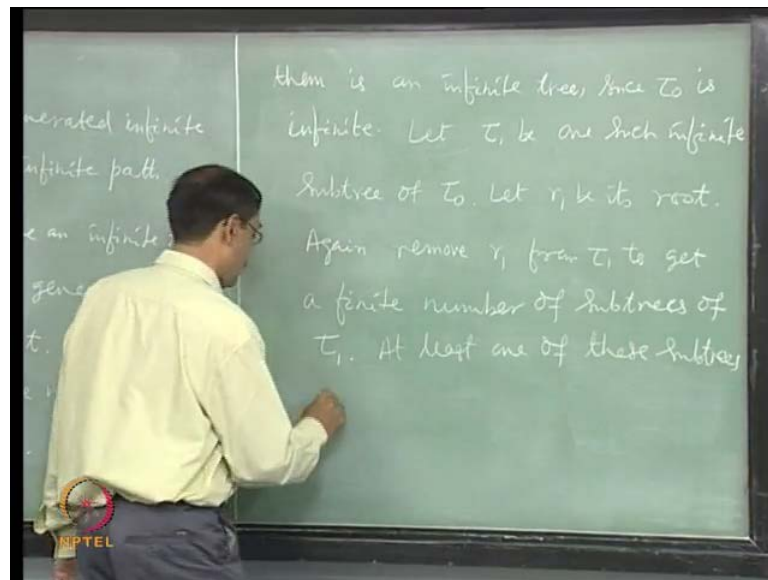 nerated infinite
infinite path.
e an infinite
gene
t.
them is an infinite tree, since τ₀ is
infinite. Let τ₁ be one such infinite
subtree of τ₀. Let r₁ be its root.
Again remove r₁ from τ₁ to get
a finite number of subtrees of
τ₁. At least one of these subtrees
NPTEL